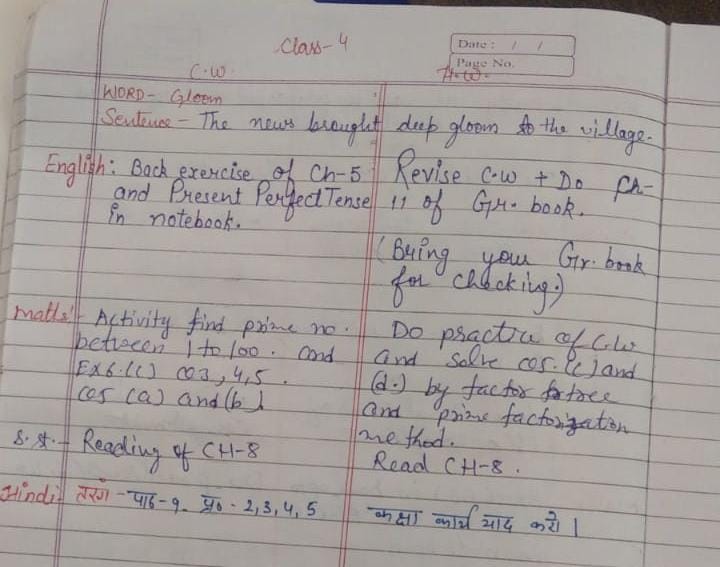 Class-4
Date : / /
Page No.
C.W.
H.W.
WORD- Gloom
Sentence - The news brought deep gloom to the village.
English: Back exercise of Ch-5
and Present Perfect Tense
in notebook.
Revise C.W + Do Ch-
11 of Gr. book.
(Bring your Gr. book
for checking.)
Maths:- Activity find prime no.
between 1 to 100. and
EX 6.(c) Q3,4,5.
(a) and (b)
Do practice of C.W
and solve (c) and
(d.) by factor tree
and prime factorization
method.
S.St.- Reading of CH-8
Read CH-8.
Hindi- तरंग -पाठ-9- प्र० - 2,3,4,5
कक्षा कार्य याद करो।